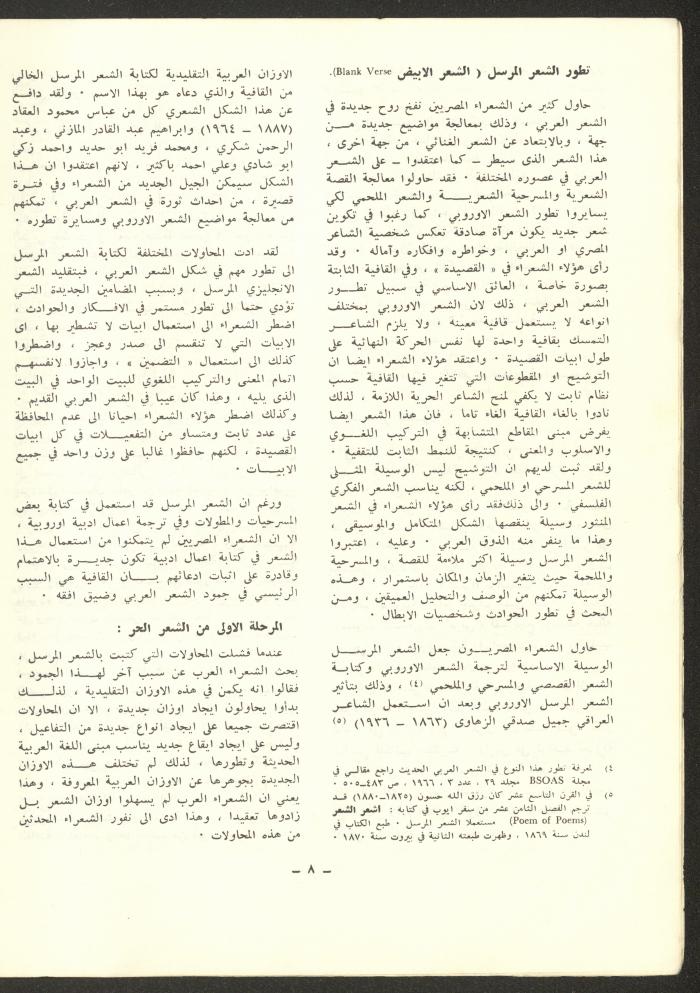 تطور الشعر المرسل ( الشعر الابيض Blank Verse).
حاول كثير من الشعراء المصريين نفخ روح جديدة في
الشعر العربي ، وذلك بمعالجة مواضيع جديدة مـــن
جهة ، وبالابتعاد عن الشعر الغنائي ، من جهة اخرى ،
هذا الشعر الذى سيطر ــ كما اعتقدوا ــ على الشـــعر
العربي في عصوره المختلفة ٠ فقد حاولوا معالجة القصة
الشعرية والمسرحية الشعريـــــة والشعر الملحمي لكي
يسايروا تطور الشعر الاوروبي ، كما رغبوا في تكوين
شعر جديد يكون مرآة صادقة تعكس شخصية الشاعر
المصري او العربي ، وخواطره وافكاره وآماله ٠ وقد
رأى هؤلاء الشعراء في « القصيدة » ، وفي القافية الثابتة
بصورة خاصة ، العائق الاساسي في سبيل تطـــور
الشعر العربي ، ذلك لان الشعر الاوروبي بمختلف
انواعه لا يستعمل قافية معينه ، ولا يلزم الشاعـــر
التمسك بقافية واحدة لها نفس الحركة النهائية على
طول ابيات القصيدة ٠ واعتقد هؤلاء الشعراء ايضا ان
التوشيح او المقطوعات التي تتغير فيها القافية حسب
نظام ثابت لا يكفي لمنح الشاعر الحرية اللازمة ، لذلك
نادوا بالغاء القافية الغاء تاما ، فان هذا الشعر ايضا
يفرض مبنى المقاطع المتشابهة في التركيب اللغـــوي
والاسلوب والمعنى ، كنتيجة للنمط الثابت للتقفية ٠
ولقد ثبت لديهم ان التوشيح ليس الوسيلة المثـــلى
للشعر المسرحي او الملحمي ، لكنه يناسب الشعر الفكري
الفلسفي ٠ والى ذلكفقد رأى هؤلاء الشعراء في الشعر
المنثور وسيلة ينقصها الشكل المتكامل والموسيقى ،
وهذا ما ينفر منه الذوق العربي ٠ وعليه ، اعتبروا
الشعر المرسل وسيلة اكثر ملاءمة للقصة ، والمسرحية
والملحمة حيث يتغير الزمان والمكان باستمرار ، وهـــذه
الوسيلة تمكنهم من الوصف والتحليل العميقين ، ومـــن
البحث في تطور الحوادث وشخصيات الابطال ٠
حاول الشعراء المصريـــون جعل الشعر المرســـل
الوسيلة الاساسية لترجمة الشعر الاوروبي وكتابـــة
الشعر القصصي والمسرحي والملحمي (٤) ، وذلك بتأثير
الشعر المرسل الاوروبي وبعد ان اســـتعمل الشاعـــر
العراقي جميل صدقي الزهاوى (١٨٦٣ ــ ١٩٣٦) (٥)
٤) لمعرفة تطور هذا النوع في الشعر العربي الحديث راجع مقالـــي في
مجلة BSOAS مجلد ٢٩ ، عدد ٣ ، ١٩٦٦ ، ص ٤٨٣ــ٥٠٥ ٠
٥) في القرن التاسع عشر كان رزق الله حسون (١٨٢٥ــ١٨٨٠) قـــد
ترجم الفصل الثامن عشر من سفر ايوب في كتابه : اشعر الشعر
(Poem of Poems) مستعملا الشعر المرسل ٠ طبع الكتاب في
لندن سنة ١٨٦٩ ، وظهرت طبعته الثانية في بيروت سنة ١٨٧٠ ٠
الاوزان العربية التقليدية لكتابة الشعر المرسل الخالي
من القافية والذي دعاه هو بهذا الاسم ٠ ولقد دافـــع
عن هذا الشكل الشعري كل من عباس محمود العقاد
(١٨٨٧ ــ ١٩٦٤) وابراهيم عبد القادر المازني ، وعبد
الرحمن شكري ، ومحمد فريد ابو حديد واحمد زكي
ابو شادي وعلي احمد باكثير ، لانهم اعتقدوا ان هـــذا
الشكل سيمكن الجيل الجديد من الشعراء وفي فتـــرة
قصيرة ، من احداث ثورة في الشعر العربي ، تمكنهم
من معالجة مواضيع الشعر الاوروبي ومسايرة تطوره ٠
لقد ادت المحاولات المختلفة لكتابة الشعر المرسل
الى تطور مهم في شكل الشعر العربي ، فبتقليد الشعر
الانجليزي المرسل ، وبسبب المضامين الجديدة التـــي
تؤدي حتما الى تطور مستمر في الافـــكار والحوادث ،
اضطر الشعراء الى استعمال ابيات لا تشطير بها ، اى
الابيات التي لا تنقسم الى صدر وعجز ، واضطروا
كذلك الى استعمال « التضمين » ، واجازوا لانفسهـــم
اتمام المعنى والتركيب اللغوي للبيت الواحد في البيت
الذى يليه ، وهذا كان عيبا في الشعر العربي القديم ٠
وكذلك اضطر هؤلاء الشعراء احيانا الى عدم المحافظة
على عدد ثابت ومتساو من التفعيـــلات في كل ابيات
القصيدة ، لكنهم حافظوا غالبا على وزن واحد في جميع
الابيـــات ٠
ورغم ان الشعر المرسل قد استعمل في كتابة بعض
المسرحيات والمطولات وفي ترجمة اعمال ادبية اوروبية ،
الا ان الشعراء المصريين لم يتمكنوا من استعمال هـــذا
الشعر في كتابة اعمال ادبية تكون جديـــرة بالاهتمام
وقادرة على اثبات ادعائهم بـــان القافية هي السبب
الرئيسي في جمود الشعر العربي وضيق افقه ٠
المرحلة الاولى من الشعر الحر :
عندما فشلت المحاولات التي كتبت بالشعر المرسل ،
بحث الشعراء العرب عن سبب آخر لهـــذا الجمود ،
فقالوا انه يكمن في هذه الاوزان التقليدية ، لذلـــك
بدأوا يحاولون ايجاد اوزان جديدة ، الا ان المحاولات
اقتصرت جميعا على ايجاد انواع جديدة من التفاعيل ،
وليس على ايجاد ايقاع جديد يناسب مبنى اللغة العربية
الحديثة وتطورها ، لذلك لم تختلف هـــذه الاوزان
الجديدة بجوهرها عن الاوزان العربية المعروفة ، وهذا
يعني ان الشعراء العرب لم يسهلوا اوزان الشعر بـــل
زادوها تعقيدا ، وهذا ادى الى نفور الشعراء المحدثين
من هذه المحاولات ٠
ــ ٨ ــ